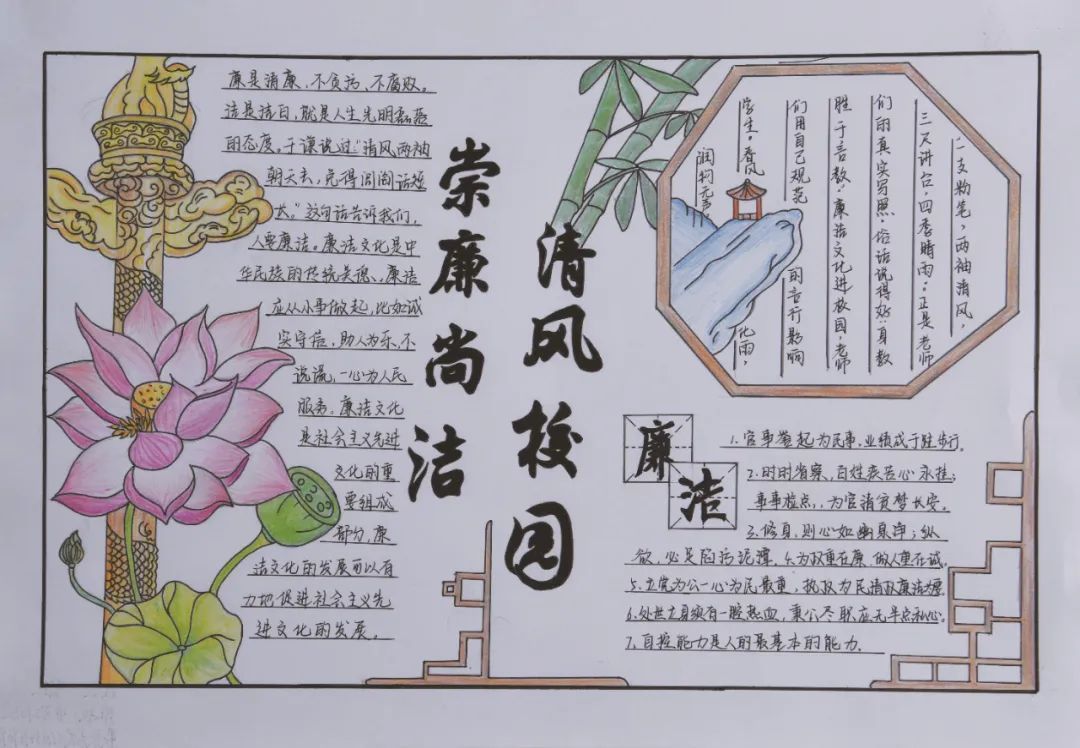 廉是清廉,不贪污,不腐败。
洁是洁白,就是人生光明磊落
的态度。于谦说过:“清风两袖
朝天去,免得闾阎话短
长。”这句话告诉我们,
人要廉洁。廉洁文化是中
华民族的传统美德、廉洁
应从小事做起,比如诚
实守信,助人为乐、不
说谎,一心为人民
服务。廉洁文化
是社会主义先进
文化的重
要组成
部分,廉
洁文化的发展可以有
力地促进社会主义先
进文化的发展。
崇廉尚洁
清风校园
一支粉笔,两袖清风,
三尺讲台,四季晴雨。正是老师
们的真实写照。俗话说得好:“身教
胜于言教”廉洁文化进校园,老师
们用自己规范的言行影响
学生。春风化雨,
润物无声
廉
洁
1.官事当起为民事,业绩成于驻步行。
2.时时省察,百姓疾苦心永挂;
事事检点,为官清贫梦长安。
3.修身,则心如幽泉净;纵
欲,必足陷污泥潭。4.为政重在廉,做人重在诚。
5.立党为公一心为民最重,执政为民清政廉洁为
6.处世立身须有一腔热血,秉公尽职应无半点私心。
7.自控能力是人的最基本的能力.